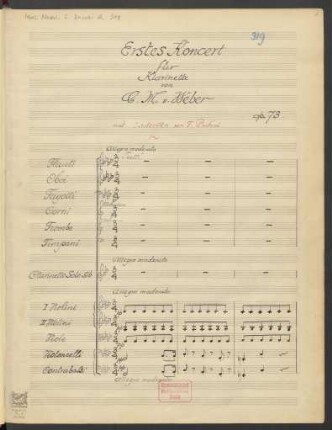 319
Erstes Konzert
für
Klarinette
von
C. M. v. Weber
op. 73.
Allegro moderato
Flauti
Oboi
Fagotti
Corni
Trombe
Timpani
Allegro moderato
Clarinetto Solo
Allegro moderato
I Violini
II Violini
Viole
Violoncelli
Contrabassi
Allegro moderato